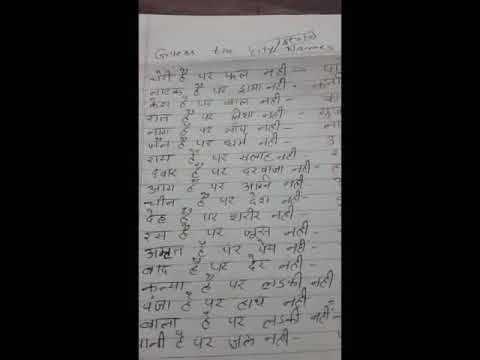 Guess the City (State) Names
चेरी है पर फल नहीं -
नाटक है पर ड्रामा नहीं -
केश है पर बाल नहीं -
रात है पर निशा नहीं -
नाग है पर सांप नहीं -
जैन है पर धर्म नहीं -
राय है पर सलाह नहीं
द्वार है पर दरवाजा नहीं -
आग है पर अग्नि नहीं
चीन है पर देश नहीं -
देह है पर शरीर नहीं -
इस है पर उस नहीं -
अमृत है पर पेय नहीं -
बाद है पर देर नहीं -
कन्या है पर लडकी नहीं
पंजा है पर हाथ नहीं =
बाला है पर लडकी नहीं -
पानी है पर जल नहीं -